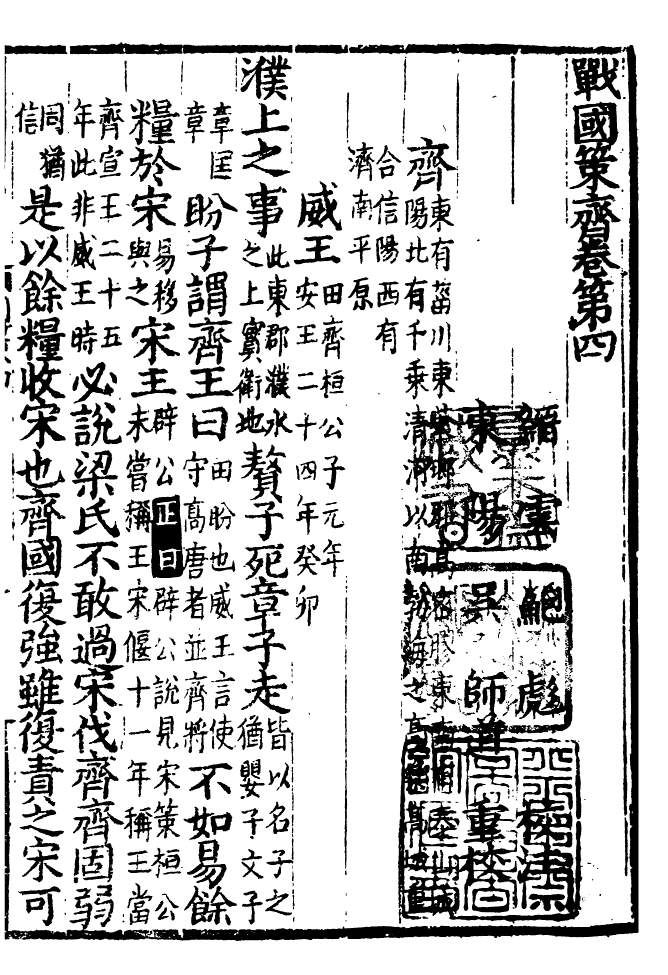 戰國策齊卷第四
縉雲 鮑彪 校注
東陽 吳師道 重校
齊東有菑川東萊琅邪高密膠東南有泰山城陽北有千乘清河以南勃海之高樂高城重
合信陽西有濟南平原
威王田齊桓公子元年安王二十四年癸卯
濮上之事此東郡濮水之上實衛地贅子死章子走皆以名子之猶嬰子文子
章匡章盼子謂齊王曰田盼也威王言使守高唐者並齊將不如易餘
糧於宋易移與之宋王辟公未嘗稱王正曰辟公說見宋策桓公宋偃十一年稱王當
齊宣王二十五年此非威王時必說梁氏不敢過宋伐齊齊固弱
同猶信是以餘糧收宋也齊國復強雖復責之宋可